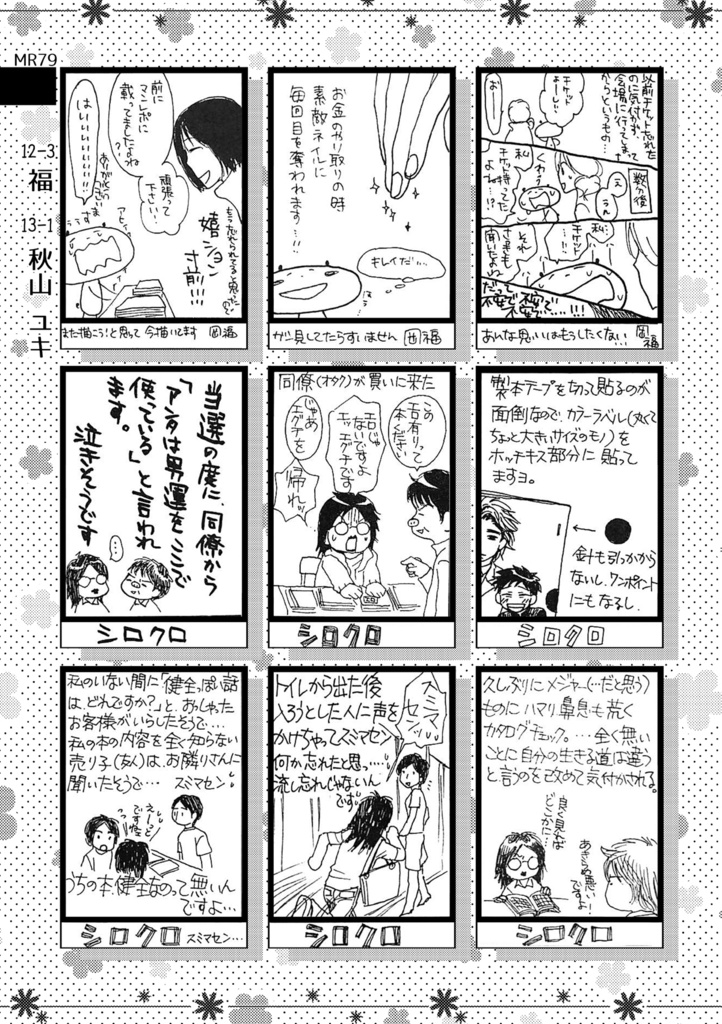 MR79
12-3 福
13-1 秋山 ユキ
以前チケット忘れた
のに気付かず
会場に行ってしまって
からというもの…
チケット
よーし…
私
数分後
え
くわっ
チケット持ってた
よね!?
私…
チケット…
それ
さっきも
聞いたよね
不安で不安で…
あんな思いはもうしたくない!
福
お金のやり取りの時
素敵ネイルに
毎回目を奪われます…!!
キレイだ…
ほう…
ガン見してたらすいません
福
前に
マンレポに
載ってましたよね?
頑張って
下さい!
はいぃぃぃぃぃ!!
ありがとうございます
嬉ション
寸前!!!
また描こう!と思って今描いてます
福
製本テープを切って貼るのが
面倒なので、カラーラベル(丸くて
ちょっと大きいサイズのモノ)を
ホッチキス部分に貼って
ますヨ。
針も引っかから
ないし、ワンポイント
にもなるし。
シロクロ
同僚(オタク)が買いに来た
この
エロ有りって
本ください
エロじゃ
ないですよ
エッエグチです
じゃあ
エグチを
帰れッ!
シロクロ
当選の度に、同僚から
「アンタは男運をここで
使っている」と言われ
ます。
泣きそうです
…
シロクロ
久しぶりにメジャー(…だと思う)
ものにハマリ鼻息も荒く
カタログチェック。…全く無い
ことに自分の生きる道は違う
と言うのを改めて気付かされる。
良く見れば
どこかに…
あきらめ悪い!
ですよ
シロクロ
トイレから出た後
入ろうとした人に声を
かけちゃってスミマセン
何か忘れたと思っ…
流し忘れじゃないん
です。
スミマ
センッ
シロクロ
私のいない間に「健全っぽい話
は、どれですか?」と、おっしゃた
お客様がいらしたそうで…
私の本の内容を全く知らない
売り子(友人)は、お隣りさんに
聞いたそうで… スミマセン
えーっと
ですね
うちの本、健全なのって無いん
ですよ…
シロクロ
スミマセン…